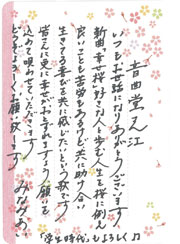 音曲堂さん江
いつもお世話になりありがとうございます。
新曲「幸せ桜」好きな人と歩む人生を桜に例え
良いことも苦労もあるけど共に助け合い
生きてる喜びを共に感じたいという歌です
皆さんに更に幸せがおとずれますよう願いを
込めて唄わせていただきます
どうぞよろしくお願い致します
みなみあい
「学生時代」もよろしく♪